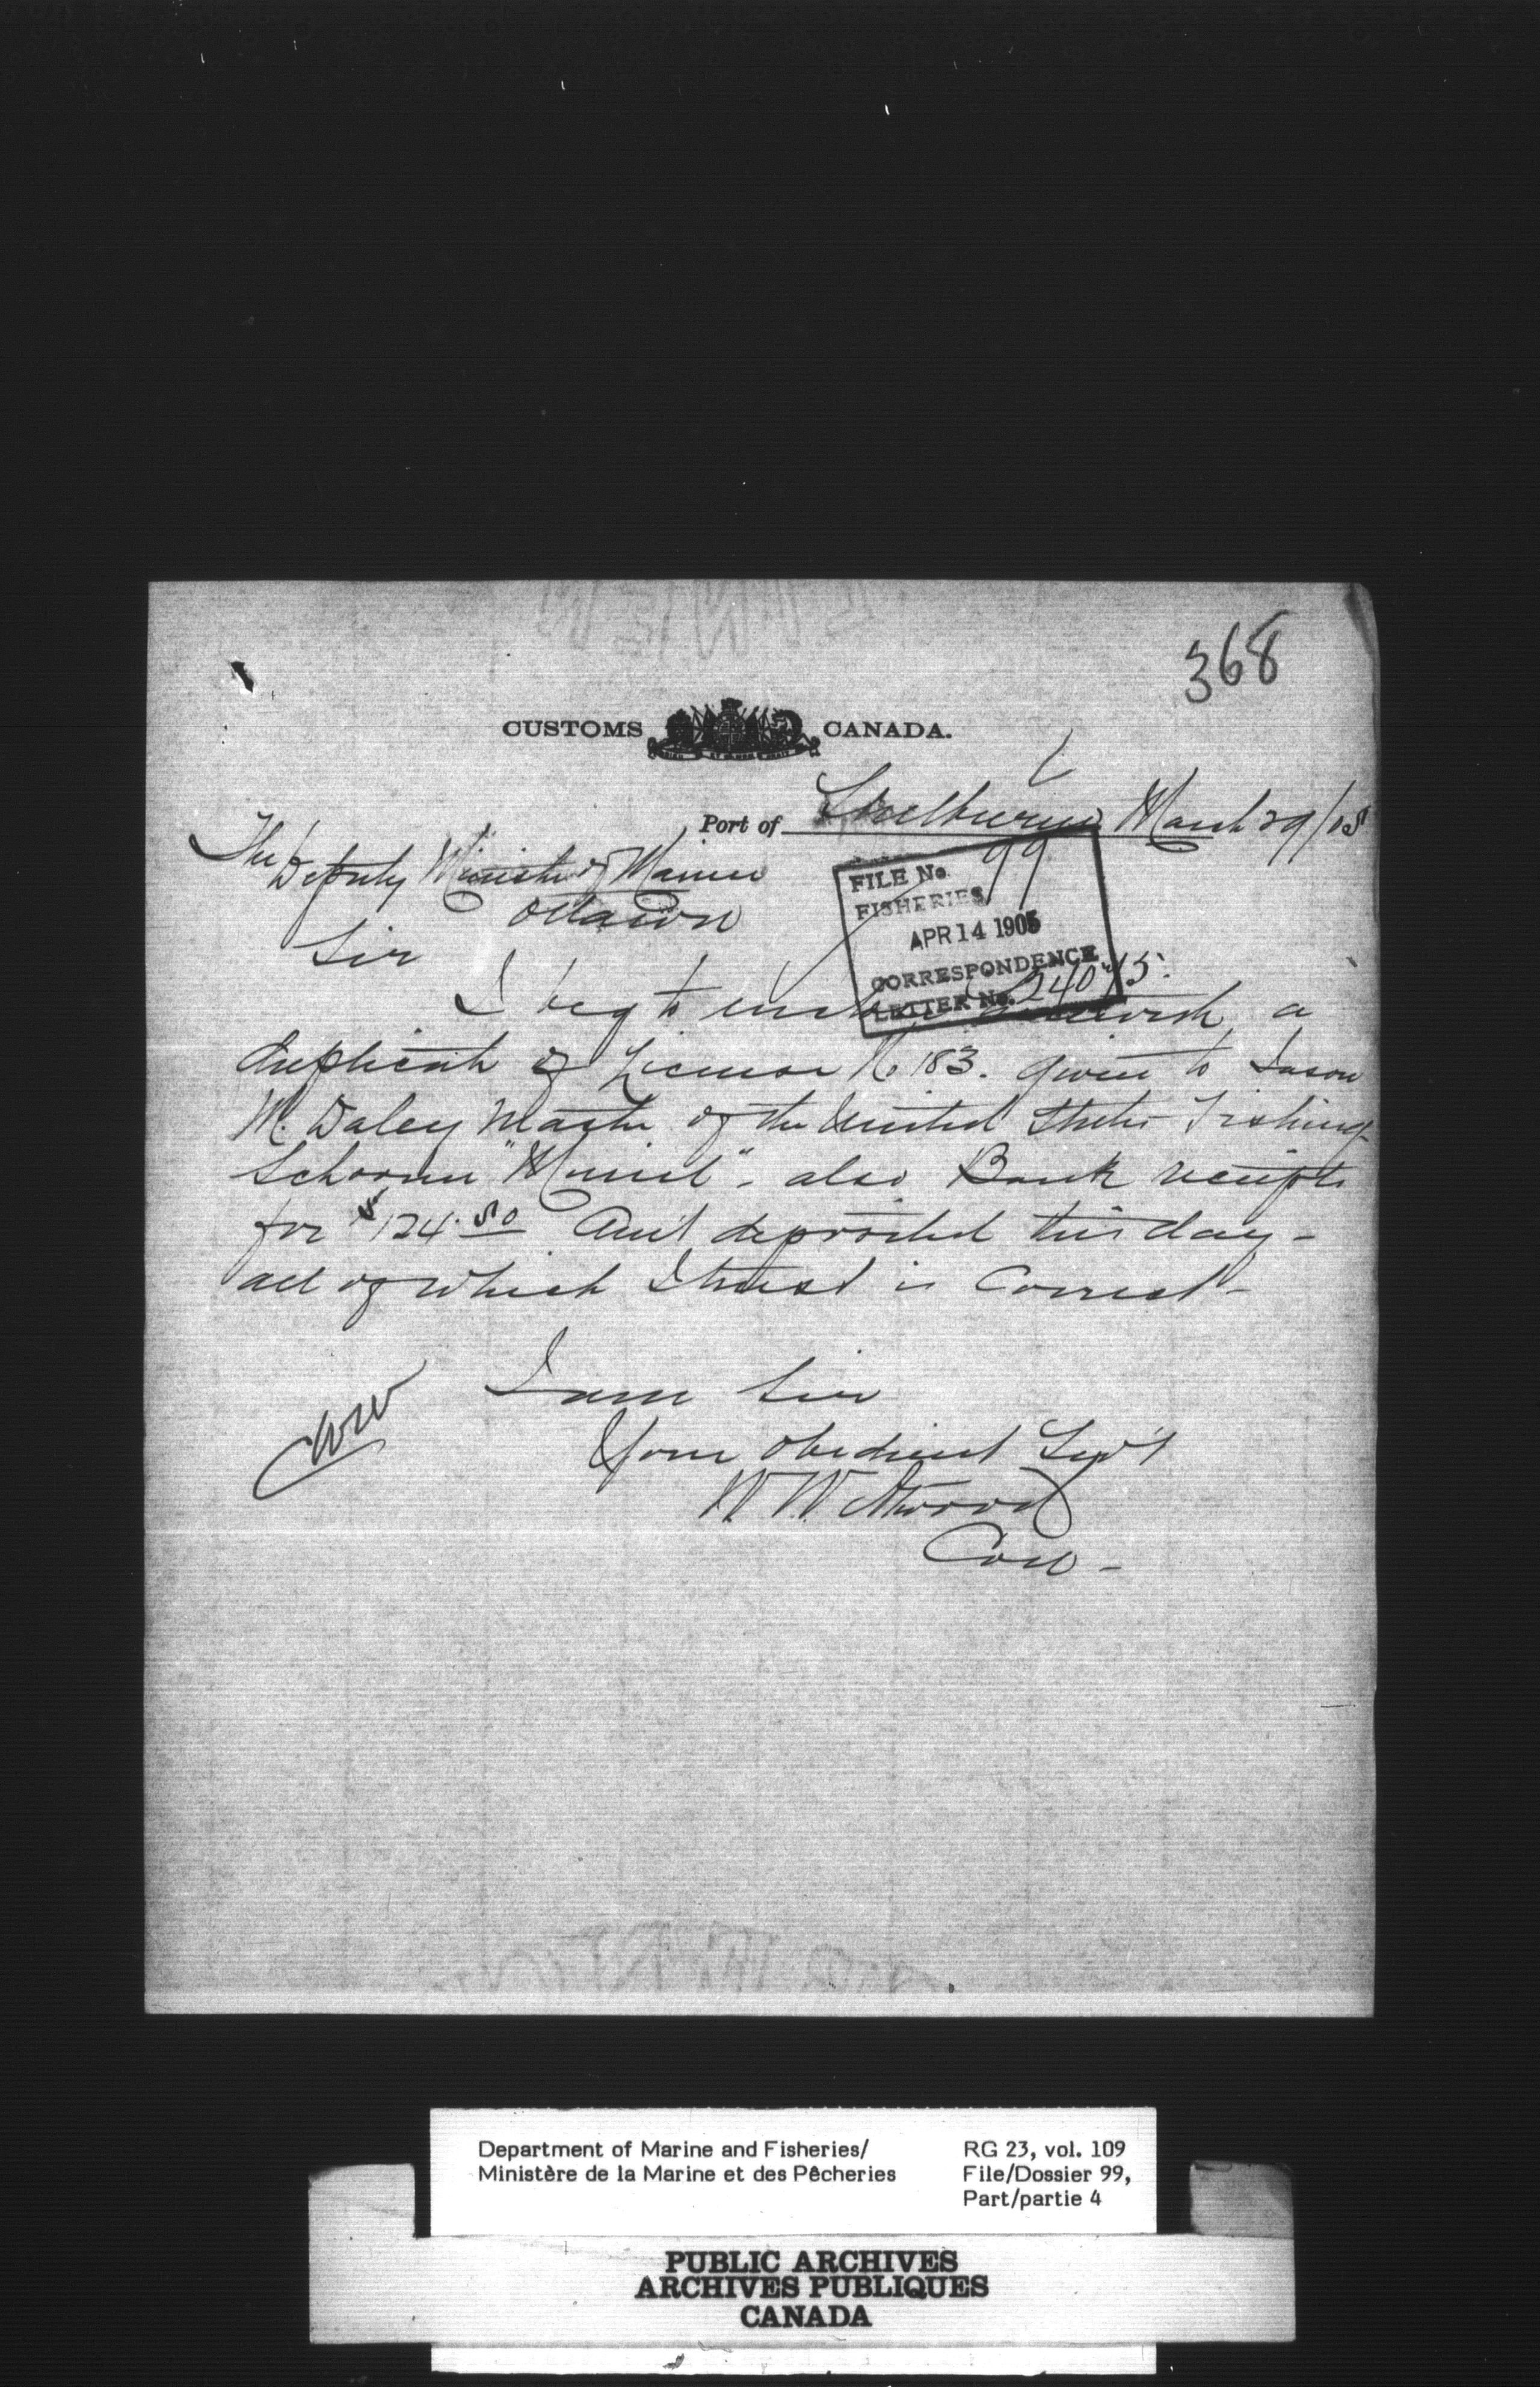 368
CUSTOMS CANADA.
Port of Shelburne March 29/05
The Deputy Minister of Marine
Ottawa
FILE No. 99
FISHERIES
APR 14 1905
CORRESPONDENCE
LETTER No. 24075.
Sir
I beg to herewith a
duplicate of License No 183. given to Jason
M. Daley Master of the United States Fishing
Schooner "Muriel". also Bank receipts
for $124.50 Am't deposited this day -
all of which I trust is Correct -
I am Sir
Your obedient Serv't
W. W. Atwood
Coll -
Department of Marine and Fisheries/
Ministère de la Marine et des Pêcheries
RG 23, vol. 109
File/Dossier 99,
Part/partie 4
PUBLIC ARCHIVES
ARCHIVES PUBLIQUES
CANADA